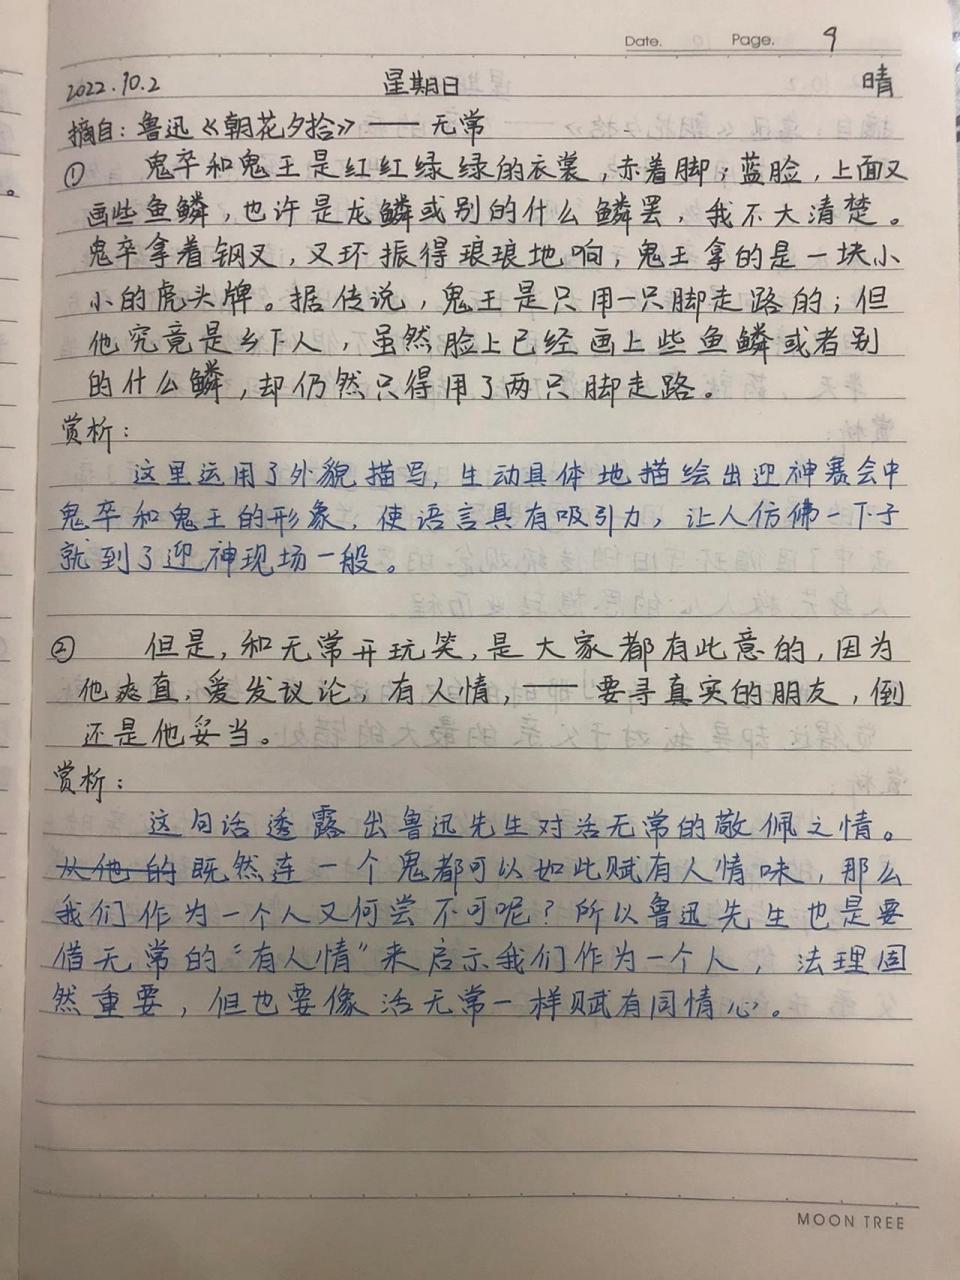 Date. Page. 9
2022.10.2 星期日 晴
摘自：鲁迅《朝花夕拾》—— 无常
① 鬼卒和鬼王是红红绿绿的衣裳，赤着脚；蓝脸，上面又
画些鱼鳞，也许是龙鳞或别的什么鳞罢，我不大清楚。
鬼卒拿着钢叉，叉环振得琅琅地响，鬼王拿的是一块小
小的虎头牌。据传说，鬼王是只用一只脚走路的；但
他究竟是乡下人，虽然脸上已经画上些鱼鳞或者别
的什么鳞，却仍然只得用了两只脚走路。
赏析：
这里运用了外貌描写，生动具体地描绘出迎神赛会中
鬼卒和鬼王的形象，使语言具有吸引力，让人仿佛一下子
就到了迎神现场一般。
② 但是，和无常开玩笑，是大家都有此意的，因为
他爽直，爱发议论，有人情，—— 要寻真实的朋友，倒
还是他妥当。
赏析：
这句话透露出鲁迅先生对活无常的敬佩之情。
从他的既然连一个鬼都可以如此赋有人情味，那么
我们作为一个人又何尝不可呢？所以鲁迅先生也是要
借无常的“有人情”来启示我们作为一个人，法理固
然重要，但也要像活无常一样赋有同情心。
MOON TREE